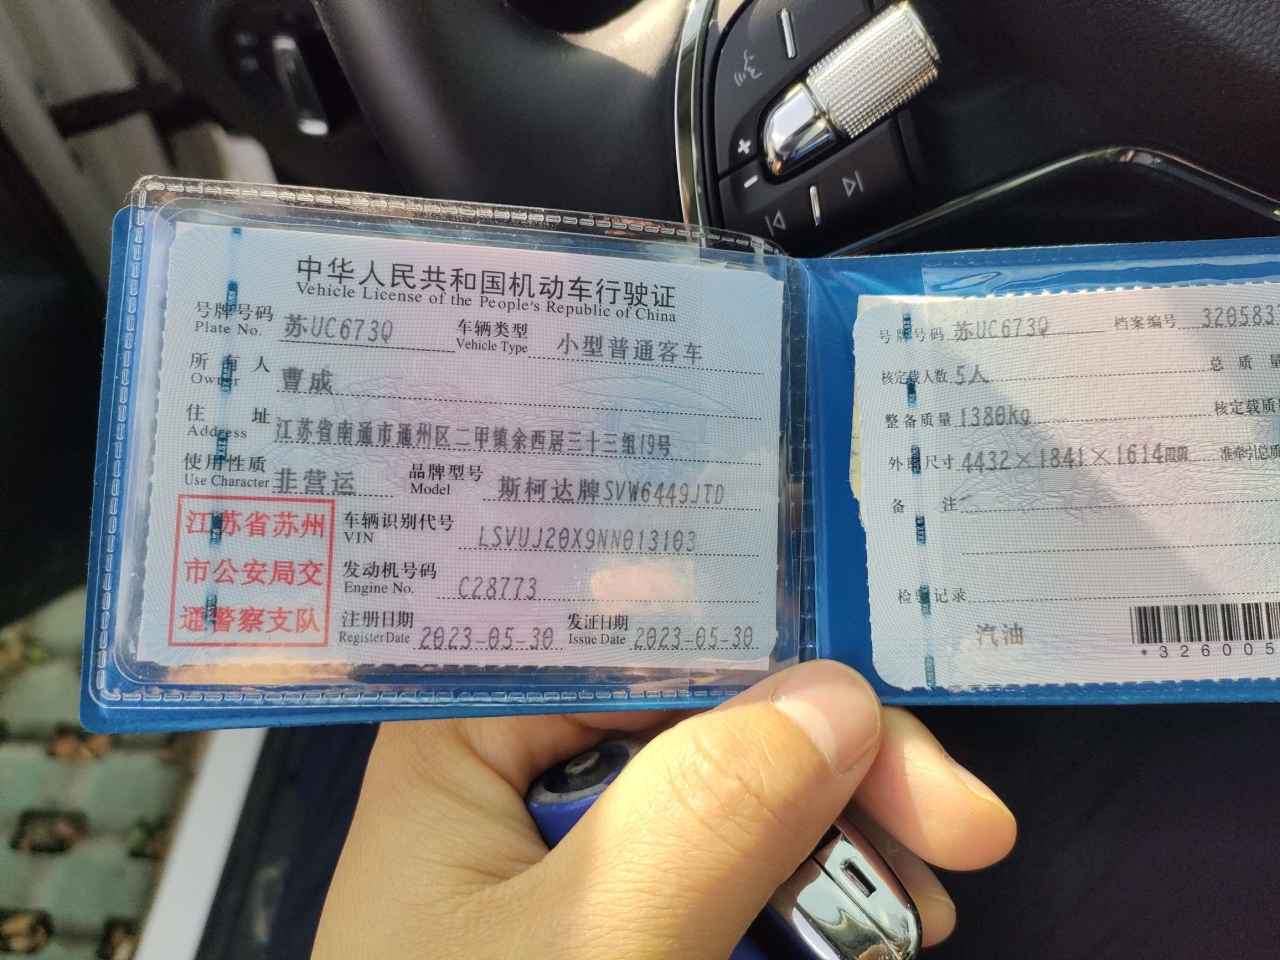 中华人民共和国机动车行驶证
Vehicle License of the People's Republic of China
号牌号码 苏UC673Q 车辆类型 小型普通客车
Plate No. Vehicle Type
所有人 曹成
Owner
住址 江苏省南通市通州区二甲镇余西居三十三组19号
Address
使用性质 非营运 品牌型号 斯柯达牌SVW6449JTD
Use Character Model
江苏省苏州
市公安局交
通警察支队
车辆识别代号 LSVUJ20X9NN013103
VIN
发动机号码 C28773
Engine No.
注册日期 2023-05-30 发证日期 2023-05-30
Register Date Issue Date
号牌号码 苏UC673Q 档案编号 320583
核定载人数 5人 总质量
整备质量 1380kg 核定载质
外廓尺寸 4432×1841×1614mm 准牵引总质
备注
检验记录
汽油
*326005